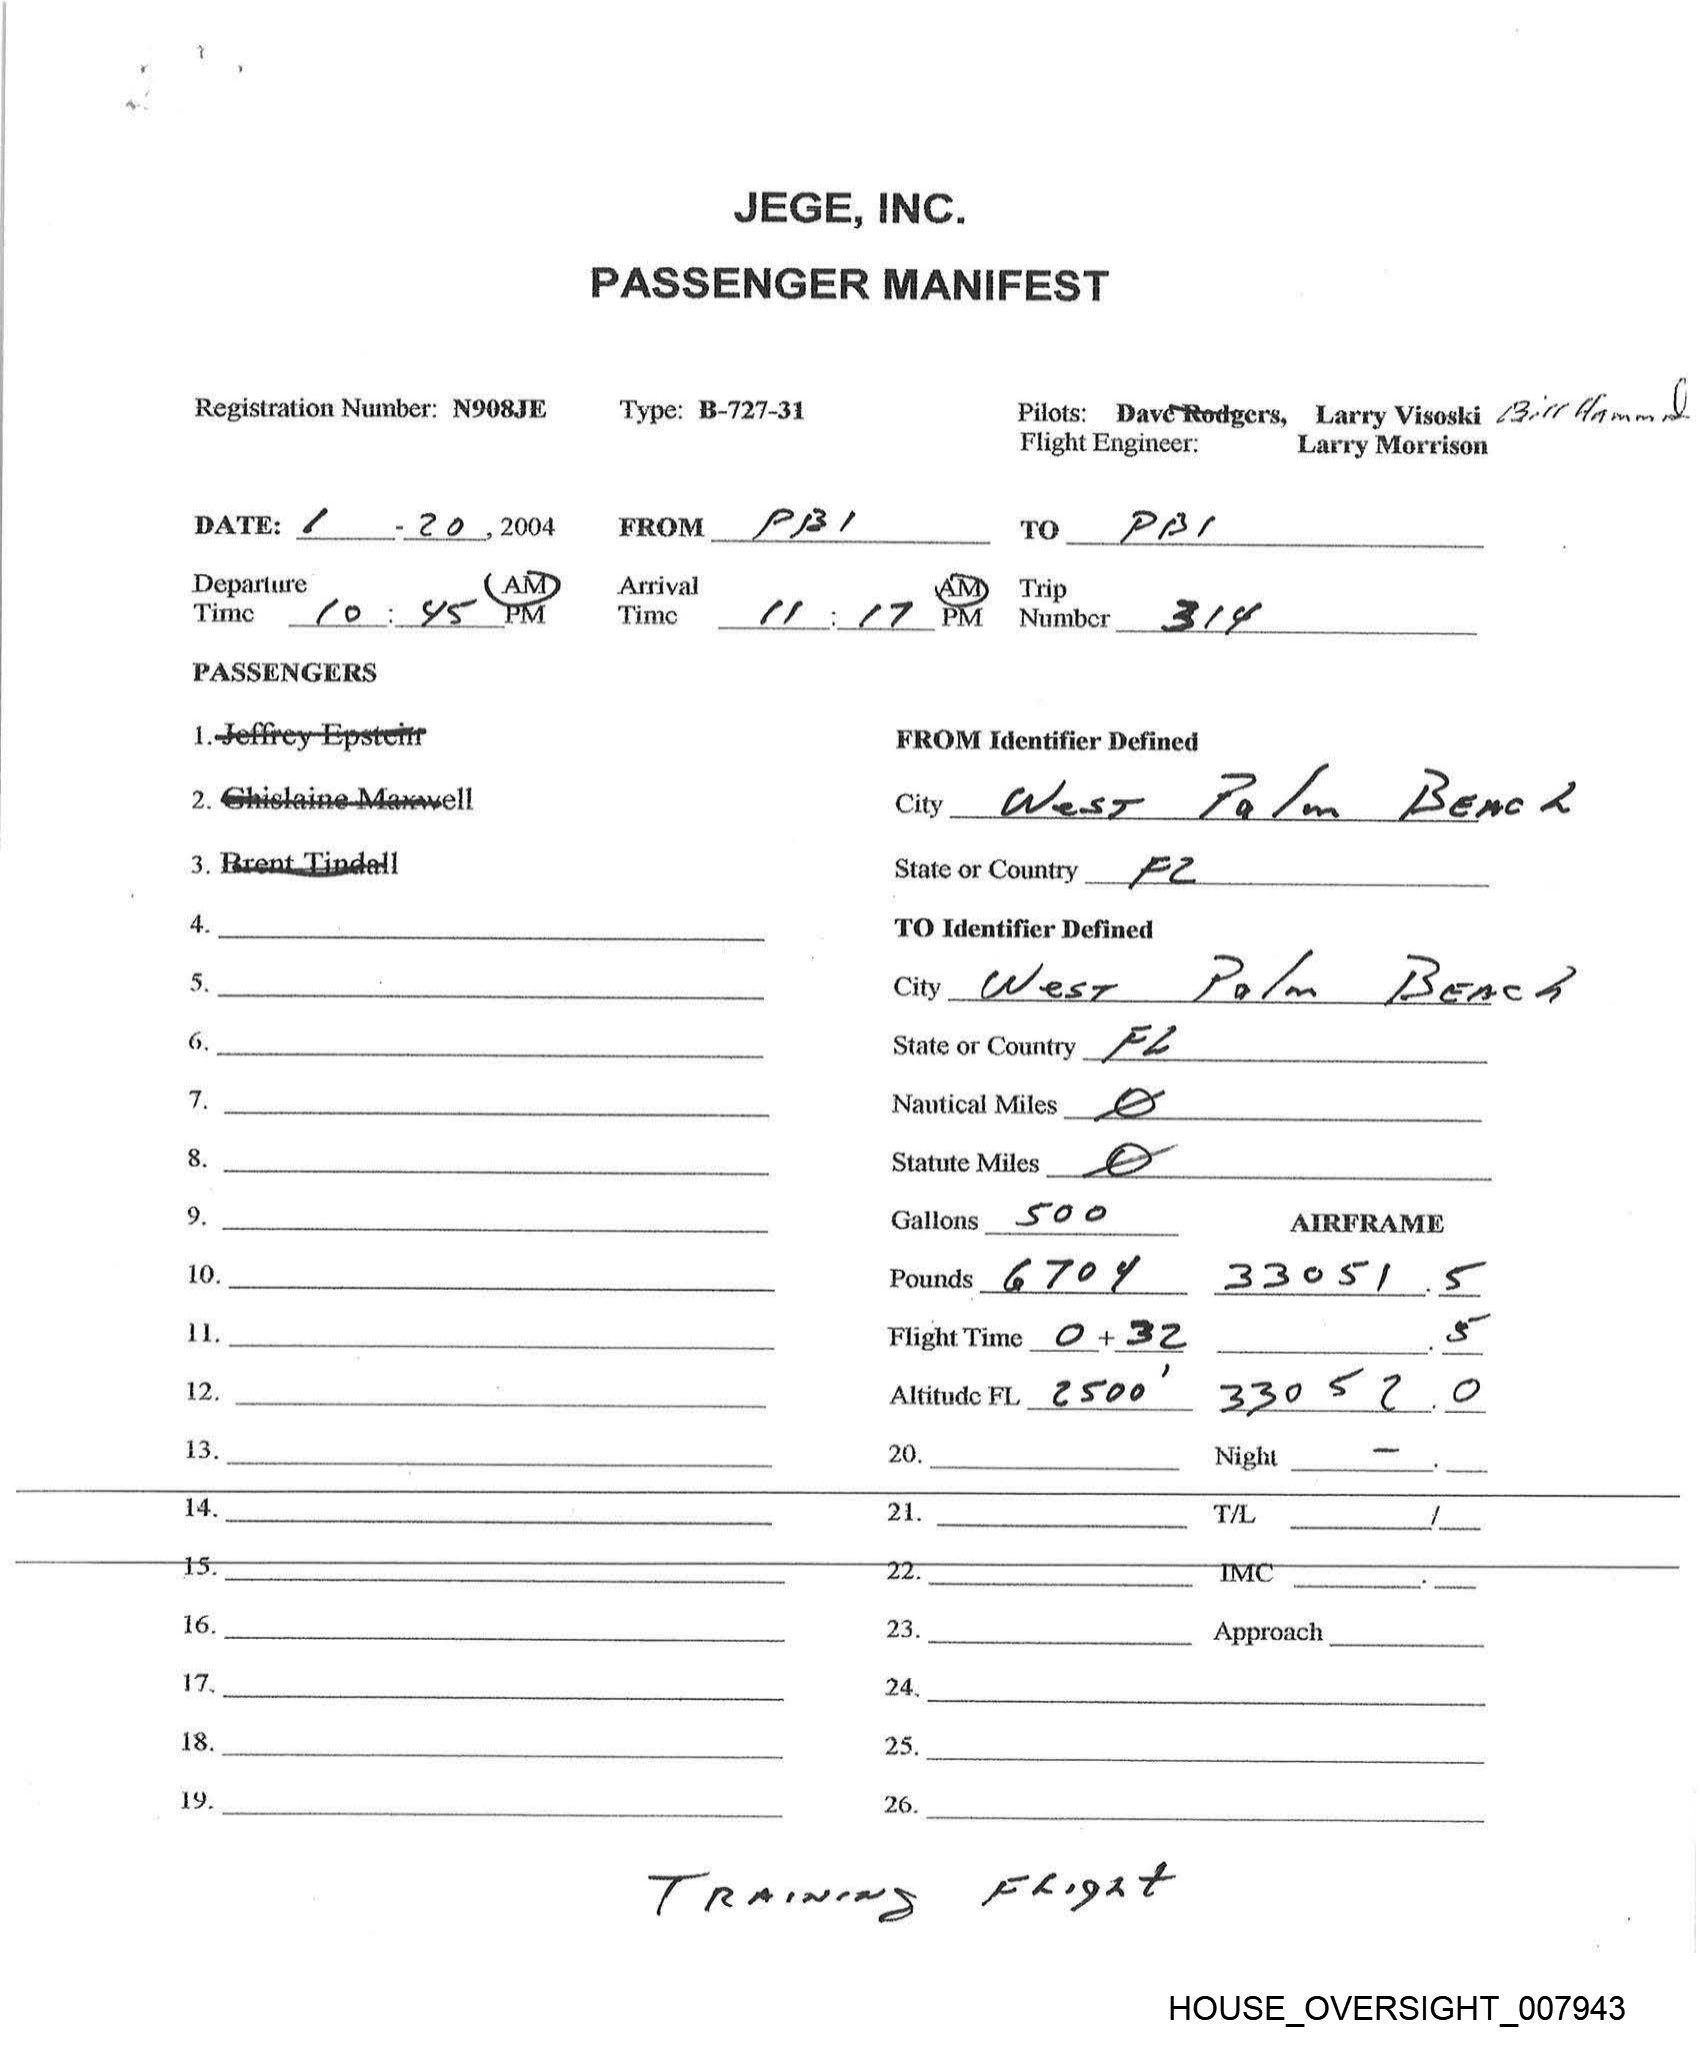 JEGE, INC.
PASSENGER MANIFEST
Registration Number: N908JE Type: B-727-31 Pilots: Dave Rodgers, Larry Visoski Bill Hammond
Flight Engineer: Larry Morrison
DATE: 1 - 20, 2004 FROM PBI TO PBI
Departure AM Arrival AM Trip
Time 10 : 45 PM Time 11 : 17 PM Number 314
PASSENGERS
1. Jeffrey Epstein FROM Identifier Defined
2. Ghislaine Maxwell City West Palm Beach
3. Brent Tindall State or Country FL
4. TO Identifier Defined
5. City West Palm Beach
6. State or Country FL
7. Nautical Miles 0
8. Statute Miles 0
9. Gallons 500 AIRFRAME
10. Pounds 6704 33051.5
11. Flight Time 0 + 32 .5
12. Altitude FL 2500' 33052.0
13. 20. Night - .
14. 21. T/L /
15. 22. IMC .
16. 23. Approach
17. 24.
18. 25.
19. 26.
Training Flight
HOUSE_OVERSIGHT_007943